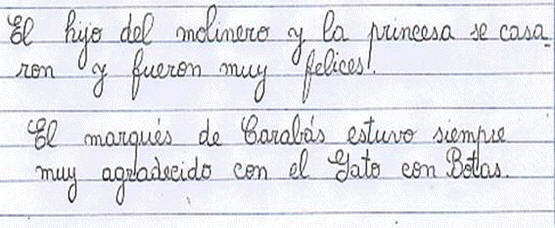 El hijo del molinero y la princesa se casa-
ron y fueron muy felices.
El marqués de Carabás estuvo siempre
muy agradecido con el Gato con Botas.